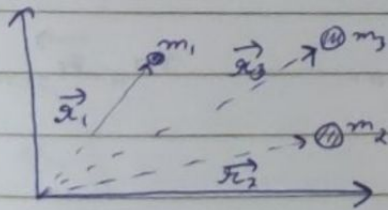 m₁
m₃
r⃗₃
r⃗₁
m₂
r⃗₂